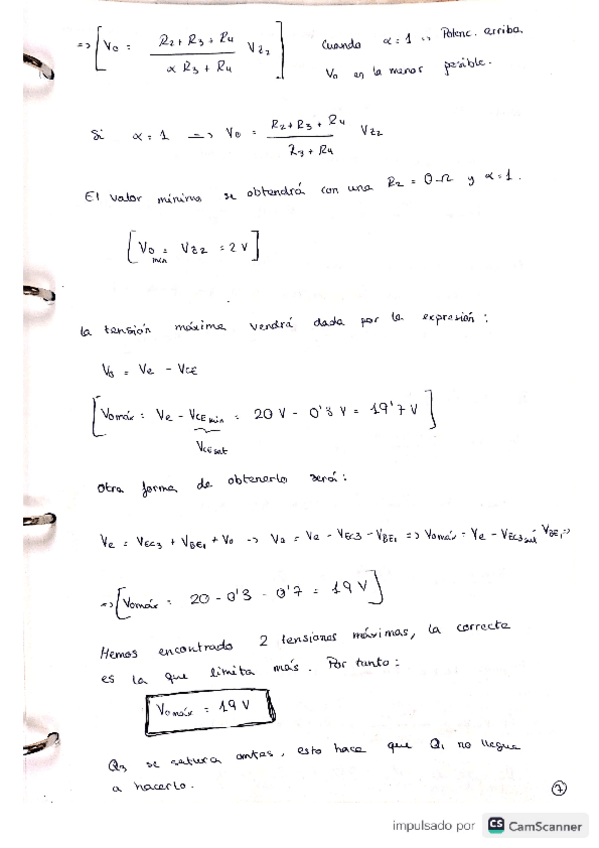 => [ Vo = (R2 + R3 + R4) / (α R3 + R4) VZ2 ] Cuando α = 1 ∴ Potenc. arriba.
Vo es la menor posible.
Si α = 1 => Vo = (R2 + R3 + R4) / (R3 + R4) VZ2
El valor mínimo se obtendrá con una R2 = 0 Ω y α = 1.
[ Vo min = VZ2 = 2 V ]
La tensión máxima vendrá dada por la expresión :
Vo = Ve - VCE
[ Vomáx = Ve - VCE min = 20 V - 0'3 V = 19'7 V ]
VCE sat
Otra forma de obtenerlo será :
Ve = VEC3 + VBE1 + Vo -> Vo = Ve - VEC3 - VBE1 => Vomáx = Ve - VEC3sat - VBE1 =>
=> [ Vomáx = 20 - 0'3 - 0'7 = 19 V ]
Hemos encontrado 2 tensiones máximas, la correcta
es la que limita más. Por tanto :
Vomáx = 19 V
Q3 se satura antes, esto hace que Q1 no llegue
a hacerlo.
7
impulsado por CS CamScanner